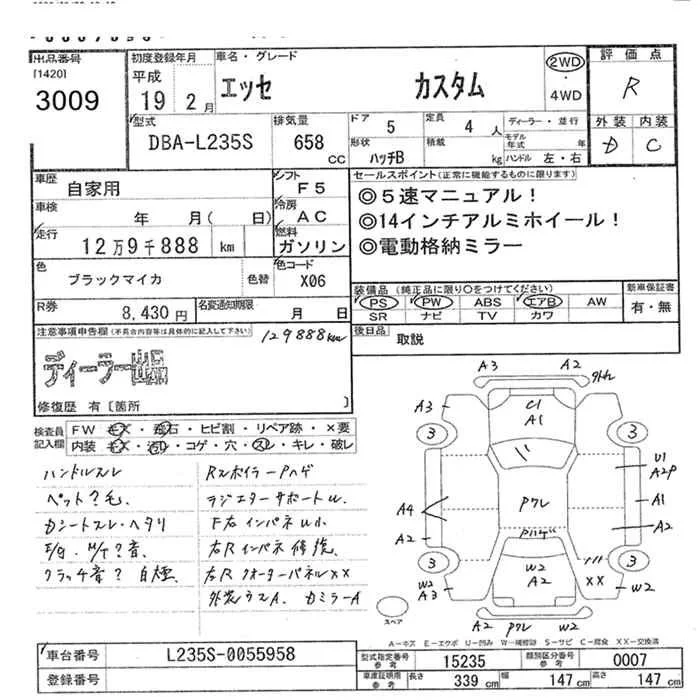 出品番号
[1420]
3009
初度登録年月
平成
19 年 2 月
車名・グレード
エッセ カスタム
2WD
・
4WD
評価点
R
外装 内装
D C
型式
DBA-L235S
排気量
658
CC
ドア 5
形状 ハッチB
定員 4 人
積載 kg
ディーラー・並行
モデル年式 年
ハンドル 左・右
車歴 自家用
シフト F5
車検 年 月( 日)
冷房 AC
走行 12万9千888 km
燃料 ガソリン
セールスポイント(正常に機能するものに限ります)
◎5速マニュアル!
◎14インチアルミホイール!
◎電動格納ミラー
色 ブラックマイカ 色替
色コード X06
装備品(純正品に限り○をつけてください)
PS PW ABS エアB AW
SR ナビ TV カワ
新車保証書
有・無
R券 8,430円
名変通知期限 月 日
後日品 取説
注意事項申告欄(不具合内容等は具体的に記入して下さい)
129888km
修復歴 有〔箇所 〕
検査員記入欄
FW キズ・飛石・ヒビ割・リペア跡・×要
内装 キズ・汚レ・コゲ・穴・スレ・キレ・破レ
ハンドルスレ
ペット?毛.
Dシートスレ・ヘタリ
E/g.M/T?音.
クラッチ音? 白煙.
Rスポイラーpハゲ
ラジエターサポートu.
F右インパネu小
右Rインパネ修復.
右Rクオーターパネル××
外装ウスA. DミラーA
A3 A2
外れ
A3
C1
A1
3 3
U1
A2P
A1
A2
Pワレ
A4
A2
Pハゲ
3 3
W2
A3
W2
A2
××
W2
A2 Pワレ W2
スペア
A-キズ E-エクボ U-凹み W-補修跡 S-サビ C-腐食 ××-交換済
車台番号 L235S-0055958
登録番号
型式指定番号 参考 15235
類別区分番号 参考 0007
車庫証明用 参考 長さ 339 cm 幅 147 cm 高さ 147 cm